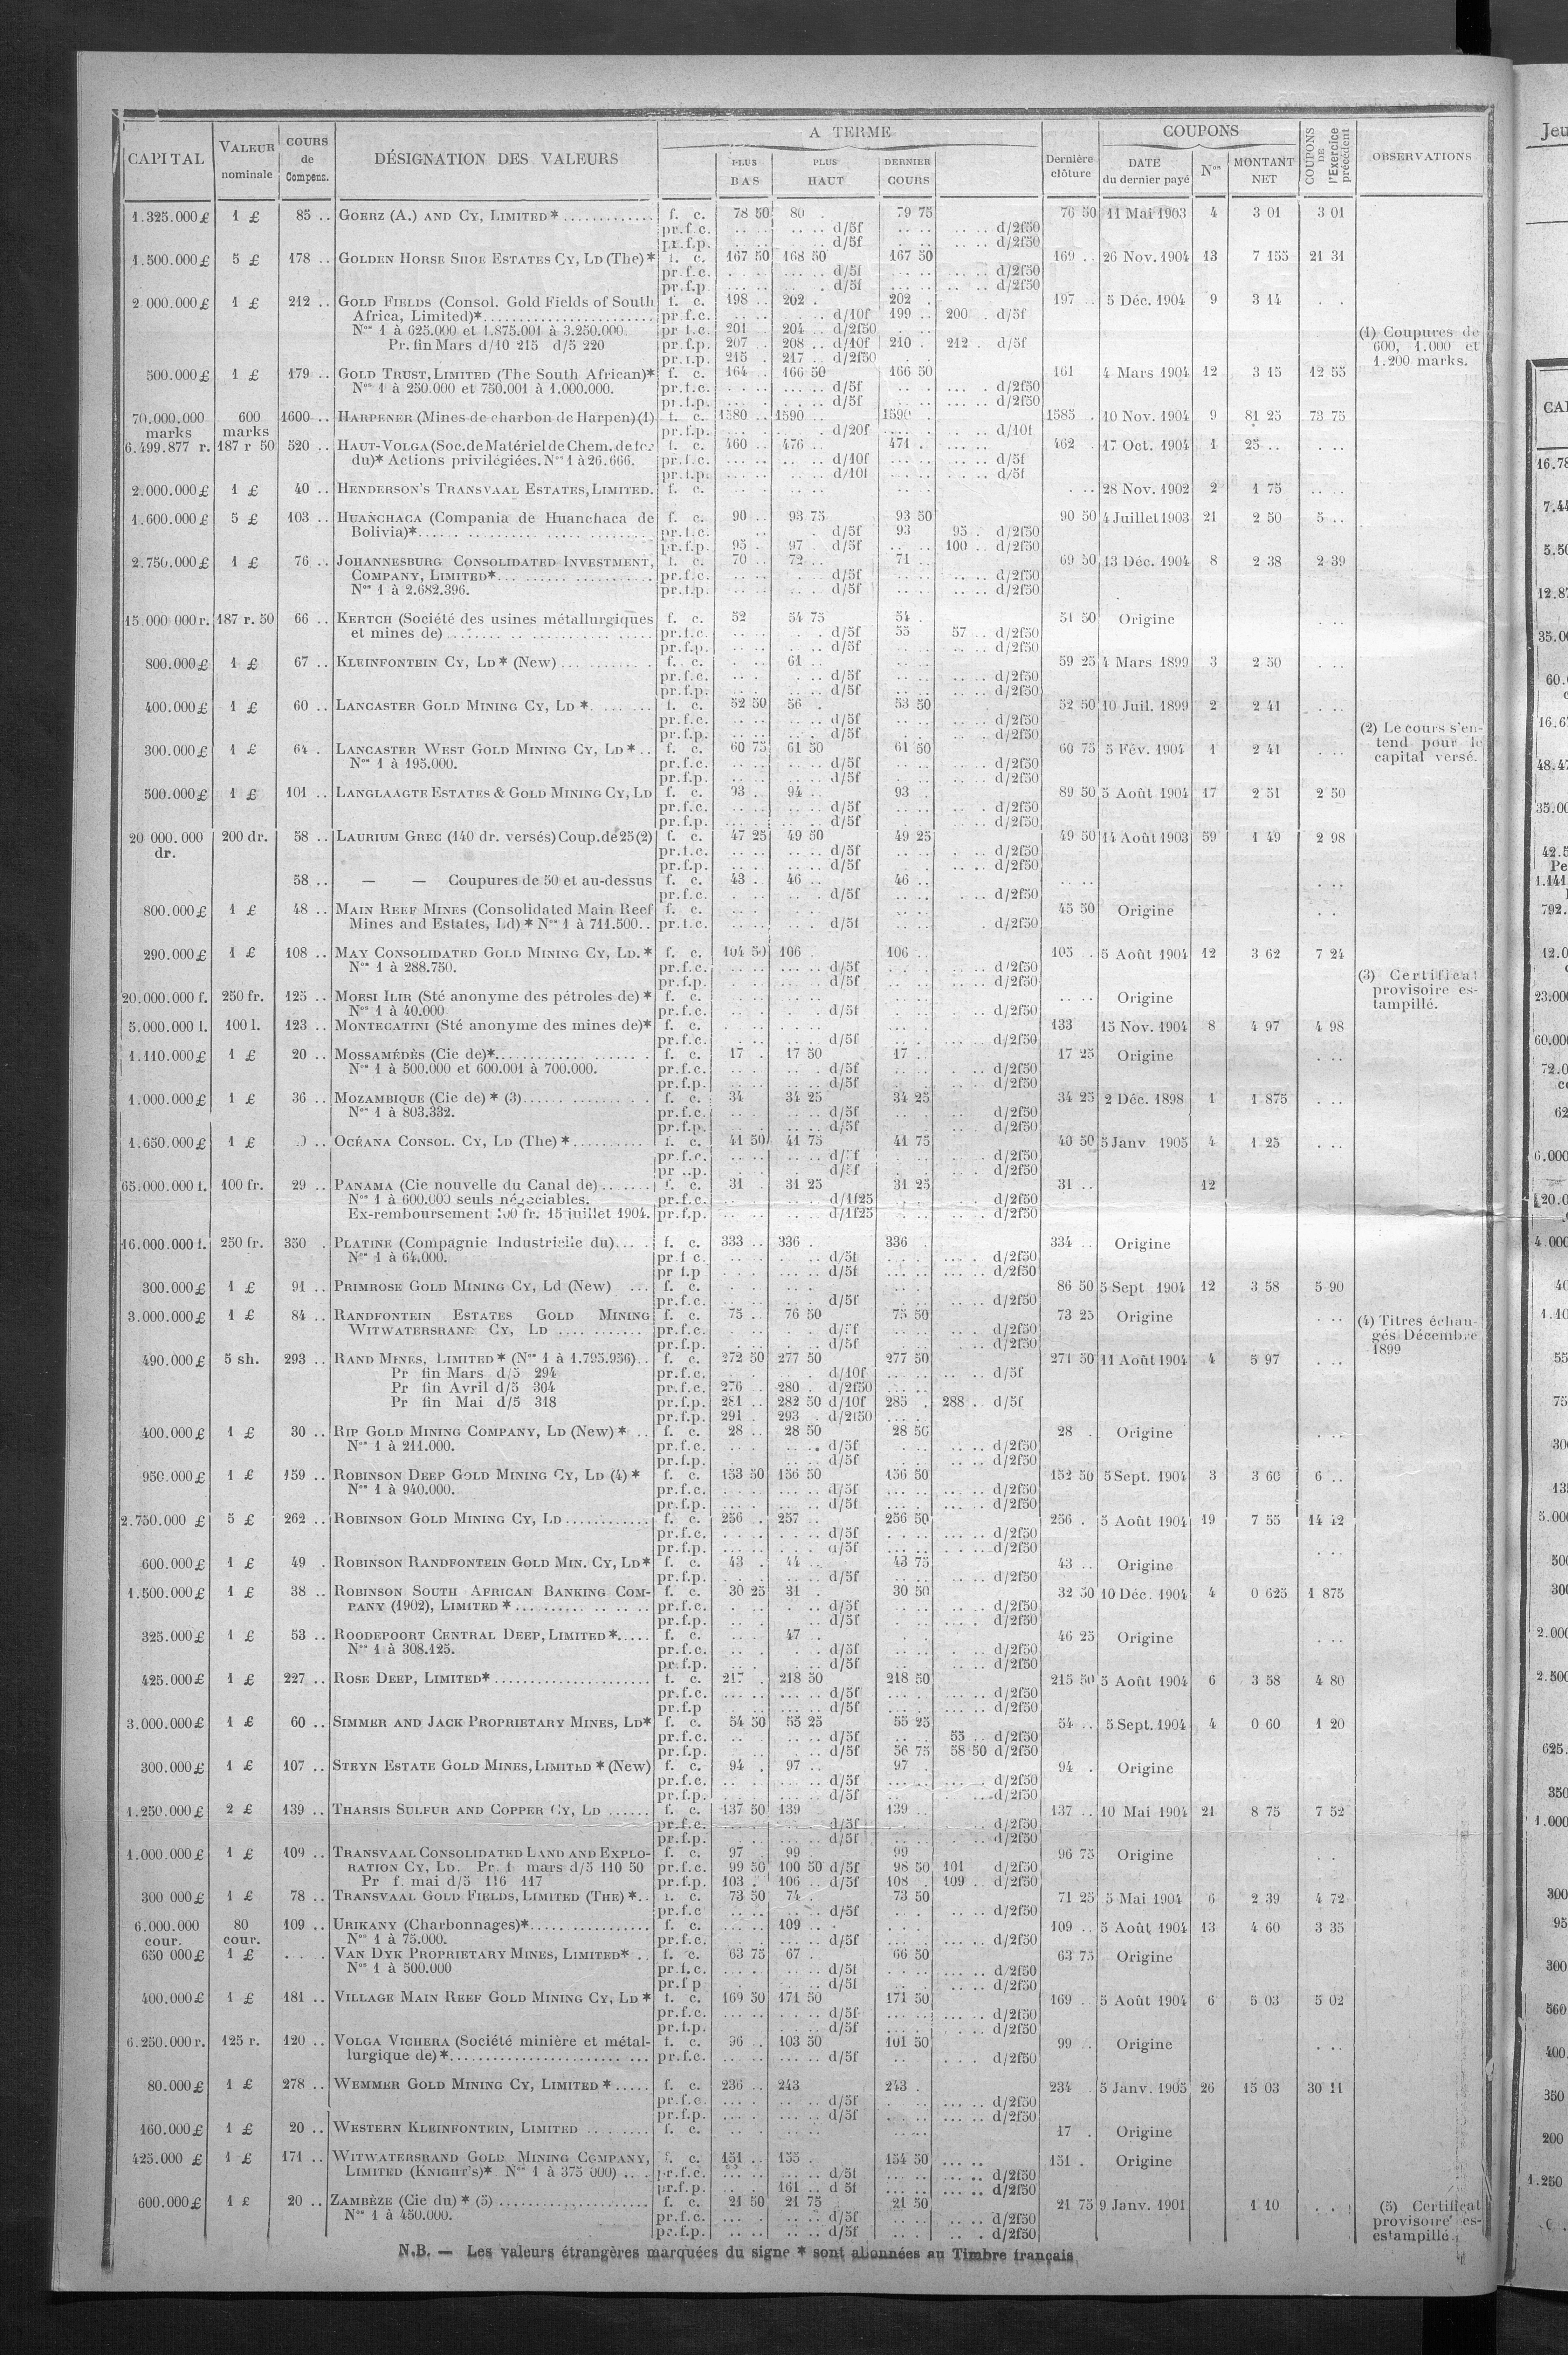 CAPITAL VALEUR nominale COURS de Compens. DÉSIGNATION DES VALEURS A TERME PLUS BAS PLUS HAUT DERNIER COURS Dernière clôture COUPONS DATE du dernier payé Nos MONTANT NET COUPONS DE l'Exercice précédent OBSERVATIONS
1.325.000£ 1 £ 85 .. GOERZ (A.) AND CY, LIMITED* f. c. 78 50 80 . 79 75 76 50 11 Mai 1903 4 3 01 3 01
pr.f.c. d/5f d/2f50
pr.f.p. d/5f d/2f50
1.500.000£ 5 £ 178 .. GOLDEN HORSE SHOE ESTATES CY, LD (The)* f. c. 167 50 168 50 167 50 169 .. 26 Nov. 1904 13 7 155 21 31
pr.f.c. d/5f d/2f50
pr.f.p. d/5f d/2f50
2.000.000£ 1 £ 212 .. GOLD FIELDS (Consol. Gold Fields of South f. c. 198 .. 202 . 202 . 197 .. 5 Déc. 1904 9 3 14 . .
Africa, Limited)* pr.f.c. d/10f 199 .. 200 . d/5f
Nos 1 à 625.000 et 1.875.001 à 3.250.000. pr.f.c. 201 204 .. d/2f50
Pr. fin Mars d/10 215 d/5 220 pr.f.p. 207 . 208 .. d/10f 210 . 212 . d/5f
pr.f.p. 215 . 217 .. d/2f50
(1) Coupures de 600, 1.000 et 1.200 marks.
500.000£ 1 £ 179 .. GOLD TRUST, LIMITED (The South African)* f. c. 164 . 166 50 166 50 161 4 Mars 1904 12 3 15 12 55
Nos 1 à 250.000 et 750.001 à 1.000.000. pr.f.c. d/5f d/2f50
pr.f.p. d/5f d/2f50
70.000.000 marks 600 marks 1600 .. HARPENER (Mines de charbon de Harpen)(1) f. c. 1580 .. 1590 .. 1590 . 1585 . 10 Nov. 1904 9 81 25 73 75
pr.f.p. d/20f d/10f
6.499.877 r. 187 r 50 520 .. HAUT-VOLGA (Soc. de Matériel de Chem. de fer f. c. 460 .. 476 .. 471 . 462 . 17 Oct. 1904 1 25 ..
du)* Actions privilégiées. Nos 1 à 26.666. pr.f.c. d/10f d/5f
pr.f.p. d/10f d/5f
2.000.000£ 1 £ 40 .. HENDERSON'S TRANSVAAL ESTATES, LIMITED. f. c. 28 Nov. 1902 2 1 75
1.600.000£ 5 £ 103 .. HUANCHACA (Compania de Huanchaca de f. c. 90 .. 93 75 93 50 90 50 4 Juillet 1903 21 2 50 5 ..
Bolivia)* pr.f.c. d/5f 93 95 . d/2f50
pr.f.p. 95 . 97 . d/5f 100 .. d/2f50
2.750.000£ 1 £ 76 .. JOHANNESBURG CONSOLIDATED INVESTMENT, f. c. 70 .. 72 .. 71 .. 69 50 13 Déc. 1904 8 2 38 2 39
COMPANY, LIMITED* pr.f.c. d/5f d/2f50
Nos 1 à 2.682.396. pr.f.p. d/5f d/2f50
15.000 000 r. 187 r. 50 66 .. KERTCH (Société des usines métallurgiques f. c. 52 54 75 54 . 51 50 Origine
et mines de) pr.f.c. d/5f 55 57 .. d/2f50
pr.f.p. d/5f d/2f50
800.000£ 1 £ 67 .. KLEINFONTEIN CY, LD* (New) f. c. 61 .. 59 25 4 Mars 1899 3 2 50
pr.f.c. d/5f d/2f50
pr.f.p. d/5f d/2f50
400.000£ 1 £ 60 .. LANCASTER GOLD MINING CY, LD * f. c. 52 50 56 . 53 50 52 50 10 Juil. 1899 2 2 41
pr.f.c. d/5f d/2f50
pr.f.p. d/5f d/2f50
(2) Le cours s'entend pour le capital versé.
300.000£ 1 £ 64 . LANCASTER WEST GOLD MINING CY, LD* f. c. 60 75 61 50 61 50 60 75 5 Fév. 1904 1 2 41
Nos 1 à 195.000. pr.f.c. d/5f d/2f50
pr.f.p. d/5f d/2f50
500.000£ 1 £ 101 .. LANGLAAGTE ESTATES & GOLD MINING CY, LD f. c. 93 . 94 .. 93 . 89 50 5 Août 1904 17 2 51 2 50
pr.f.c. d/5f d/2f50
pr.f.p. d/5f d/2f50
20 000.000 dr. 200 dr. 58 .. LAURIUM GREC (140 dr. versés) Coup. de 25 (2) f. c. 47 25 49 50 49 25 49 50 14 Août 1903 59 1 49 2 98
pr.f.c. d/5f d/2f50
pr.f.p. d/5f d/2f50
58 .. — — Coupures de 50 et au-dessus f. c. 43 . 46 .. 46 ..
pr.f.c. d/5f d/2f50
800.000£ 1 £ 48 .. MAIN REEF MINES (Consolidated Main Reef f. c. 45 50 Origine
Mines and Estates, Ld)* Nos 1 à 711.500.. pr.f.c. d/5f d/2f50
290.000£ 1 £ 108 .. MAY CONSOLIDATED GOLD MINING CY, LD.* f. c. 104 50 106 . 106 .. 105 .. 5 Août 1904 12 3 62 7 24
Nos 1 à 288.750. pr.f.c. d/5f d/2f50
pr.f.p. d/5f d/2f50
(3) Certificat provisoire estampillé.
20.000.000 f. 250 fr. 125 .. MORSI ILIR (Sté anonyme des pétroles de) * f. c. Origine
Nos 1 à 40.000 pr.f.c. d/5f d/2f50
5.000.000 l. 100 l. 123 .. MONTECATINI (Sté anonyme des mines de)* f. c. 133 15 Nov. 1904 8 4 97 4 98
pr.f.c. d/5f d/2f50
1.110.000£ 1 £ 20 .. MOSSAMÉDÈS (Cie de)* f. c. 17 . 17 50 17 .. 17 25 Origine
Nos 1 à 500.000 et 600.001 à 700.000. pr.f.c. d/5f d/2f50
pr.f.p. d/5f d/2f50
1.000.000£ 1 £ 36 .. MOZAMBIQUE (Cie de) * (3) f. c. 34 34 25 34 25 34 25 2 Déc. 1898 1 1 875
Nos 1 à 803.332. pr.f.c. d/5f d/2f50
pr.f.p. d/5f d/2f50
1.650.000£ 1 £ OCÉANA CONSOL. CY, LD (The) * f. c. 41 50 41 75 41 75 40 50 5 Janv 1905 4 1 25
pr.f.c. d/5f d/2f50
d/5f d/2f50
65.000.000 f. 100 fr. 29 .. PANAMA (Cie nouvelle du Canal de) f. c. 31 . 31 25 31 25 31 .. 12
Nos 1 à 600.000 seuls négociables. pr.f.c. d/1f25 d/2f50
Ex-remboursement 100 fr. 15 juillet 1904. pr.f.p. d/1f25 d/2f50
16.000.000 f. 250 fr. 350 . PLATINE (Compagnie Industrielle du) f. c. 333 .. 336 . 336 . 334 .. Origine
Nos 1 à 64.000. pr.f.c. d/5f d/2f50
pr f.p d/5f d/2f50
300.000£ 1 £ 91 .. PRIMROSE GOLD MINING CY, Ld (New) f. c. 86 50 5 Sept 1904 12 3 58 5 90
pr.f.c. d/5f d/2f50
3.000.000£ 1 £ 84 .. RANDFONTEIN ESTATES GOLD MINING f. c. 75 .. 76 50 75 50 73 25 Origine
WITWATERSRAND CY, LD pr.f.c. d/5f d/2f50
pr.f.p. d/5f d/2f50
(4) Titres échangés Décembre 1899
490.000£ 5 sh. 293 .. RAND MINES, LIMITED* (Nos 1 à 1.795.956) f. c. 272 50 277 50 277 50 271 50 11 Août 1904 4 5 97
Pr fin Mars d/5 294 pr.f.c. d/10f d/5f
Pr fin Avril d/5 304 pr.f.c. 276 . 280 . d/2f50
Pr fin Mai d/5 318 pr.f.p. 281 .. 282 50 d/10f 285 . 288 . d/5f
pr.f.p. 291 . 293 . d/2f50
400.000£ 1 £ 30 .. RIP GOLD MINING COMPANY, LD (New) * f. c. 28 .. 28 50 28 50 28 . Origine
Nos 1 à 211.000. pr.f.c. d/5f d/2f50
pr.f.p. d/5f d/2f50
950.000£ 1 £ 159 .. ROBINSON DEEP GOLD MINING CY, LD (4) * f. c. 153 50 156 50 156 50 152 50 5 Sept. 1904 3 3 60 6 ..
Nos 1 à 940.000. pr.f.c. d/5f d/2f50
pr.f.p. d/5f d/2f50
2.750.000 £ 5 £ 262 .. ROBINSON GOLD MINING CY, LD f. c. 256 .. 257 .. 256 50 256 . 5 Août 1904 19 7 55 14 12
pr.f.c. d/5f d/2f50
pr.f.p. d/5f d/2f50
600.000£ 1 £ 49 . ROBINSON RANDFONTEIN GOLD MIN. CY, LD* f. c. 43 . 44 .. 43 75 43 .. Origine
pr.f.p. d/5f d/2f50
1.500.000£ 1 £ 38 .. ROBINSON SOUTH AFRICAN BANKING COM- f. c. 30 25 31 . 30 50 32 50 10 Déc. 1904 4 0 625 1 875
PANY (1902), LIMITED * pr.f.c. d/5f d/2f50
pr.f.p. d/5f d/2f50
325.000£ 1 £ 53 .. ROODEPOORT CENTRAL DEEP, LIMITED* f. c. 47 .. 46 25 Origine
Nos 1 à 308.125. pr.f.c. d/5f d/2f50
pr.f.p. d/5f d/2f50
425.000£ 1 £ 227 .. ROSE DEEP, LIMITED* f. c. 217 . 218 50 218 50 215 50 5 Août 1904 6 3 58 4 80
pr.f.c. d/5f d/2f50
pr.f.p d/5f d/2f50
3.000.000£ 1 £ 60 .. SIMMER AND JACK PROPRIETARY MINES, LD* f. c. 54 50 55 25 55 25 54 .. 5 Sept. 1904 4 0 60 1 20
pr.f.c. d/5f 55 .. d/2f50
pr.f.p. d/5f 56 75 58 50 d/2f50
300.000£ 1 £ 107 .. STEYN ESTATE GOLD MINES, LIMITED * (New) f. c. 94 . 97 .. 97 . 94 . Origine
pr.f.c. d/5f d/2f50
pr.f.p. d/5f d/2f50
1.250.000£ 2 £ 139 .. THARSIS SULFUR AND COPPER CY, LD f. c. 137 50 139 139 .. 137 .. 10 Mai 1904 21 8 75 7 52
pr.f.c. d/5f d/2f50
pr.f.p. d/5f d/2f50
1.000.000£ 1 £ 109 .. TRANSVAAL CONSOLIDATED LAND AND EXPLO- f. c. 97 . 99 . 99 96 75 Origine
RATION CY, LD. Pr. f mars d/5 110 50 pr.f.c. 99 50 100 50 d/5f 98 50 101 d/2f50
Pr f. mai d/5 116 117 pr.f.p. 103 . 106 .. d/5f 108 . 109 .. d/2f50
300 000£ 1 £ 78 .. TRANSVAAL GOLD FIELDS, LIMITED (THE) * f. c. 73 50 74 . 73 50 71 25 5 Mai 1904 6 2 39 4 72
pr.f.c d/5f d/2f50
6.000.000 cour. 80 cour. 109 .. URIKANY (Charbonnages)* f. c. 109 .. 109 .. 5 Août 1904 13 4 60 3 35
Nos 1 à 75.000. pr.f.c. d/5f d/2f50
650 000£ 1 £ VAN DYK PROPRIETARY MINES, LIMITED* f. c. 63 75 67 . 66 50 63 75 Origine
Nos 1 à 500.000 pr.f.c. d/5f d/2f50
pr.f p d/5f d/2f50
400.000£ 1 £ 181 .. VILLAGE MAIN REEF GOLD MINING CY, LD * f. c. 169 50 171 50 171 50 169 .. 5 Août 1904 6 5 03 5 02
pr.f.c. d/5f d/2f50
pr.f.p. d/5f d/2f50
6.250.000 r. 125 r. 120 .. VOLGA VICHERA (Société minière et métal- f. c. 96 .. 103 50 101 50 99 .. Origine
lurgique de)* pr.f.c. d/5f d/2f50
80.000£ 1 £ 278 .. WEMMER GOLD MINING CY, LIMITED * f. c. 236 .. 243 243 . 234 5 Janv. 1905 26 15 03 30 11
pr.f.c. d/5f d/2f50
pr.f.p. d/5f d/2f50
160.000£ 1 £ 20 .. WESTERN KLEINFONTEIN, LIMITED f. c. 17 . Origine
425.000 £ 1 £ 171 .. WITWATERSRAND GOLD MINING COMPANY, f. c. 151 .. 155 . 154 50 151 . Origine
LIMITED (KNIGHT'S)* Nos 1 à 375 000) pr.f.c. d/5f d/2f50
pr.f.p. 161 .. d 5f d/2f50
600.000£ 1 £ 20 .. ZAMBÈZE (Cie du) * (5) f. c. 21 50 21 75 21 50 21 75 9 Janv. 1901 1 10
Nos 1 à 450.000. pr.f.c. d/5f d/2f50
pr.f.p. d/5f d/2f50
(5) Certificat provisoire es-estampillé.
N.B. — Les valeurs étrangères marquées du signe * sont abonnées au Timbre français